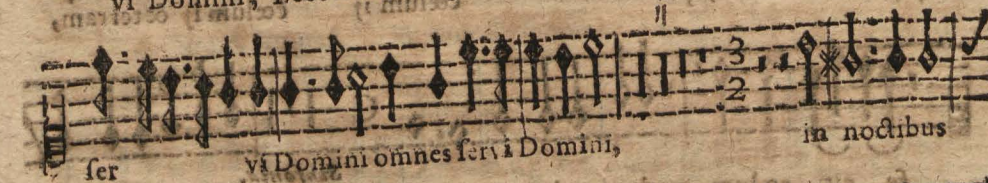 vi Domini,
3
2
ſer vi Domini omnes ſervi Domini, in noctibus